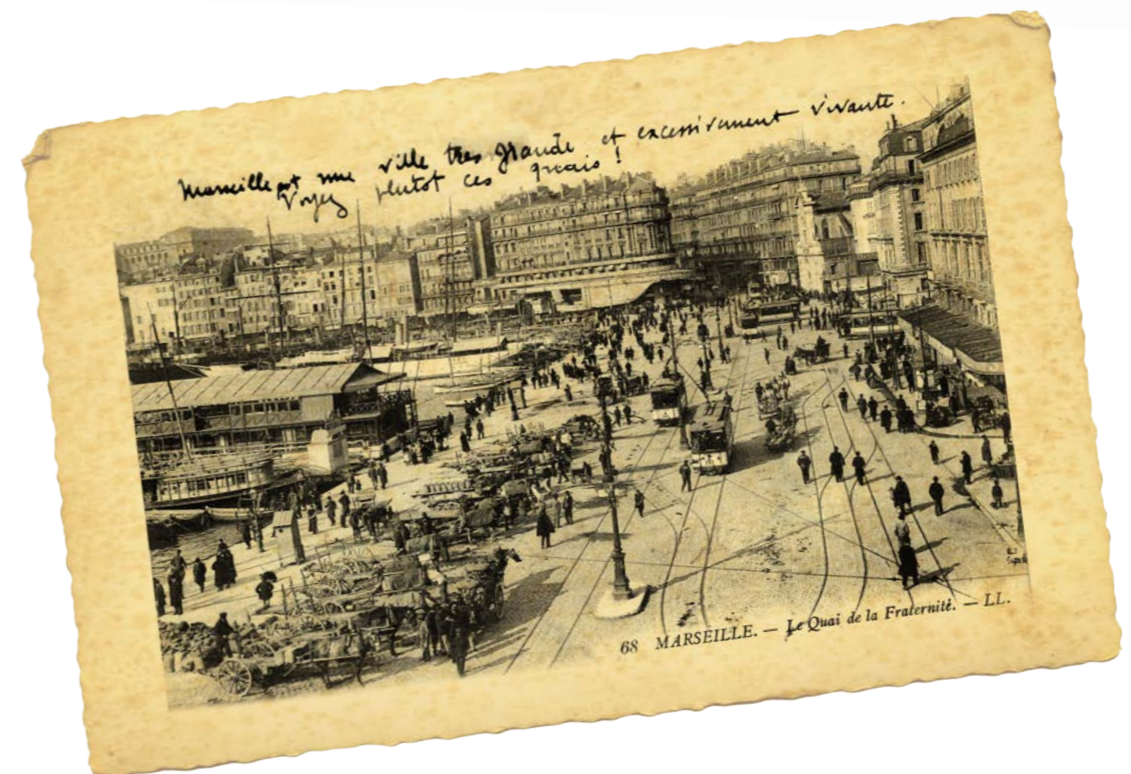 Marseille est une ville tres grande et excessivement vivante.
Voyez plutot ces quais !
68 MARSEILLE. — Le Quai de la Fraternité. — LL.